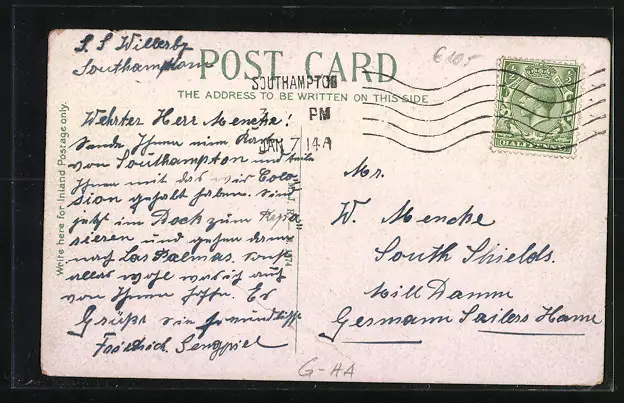 S. S Willerby
Southampton
POST CARD
THE ADDRESS TO BE WRITTEN ON THIS SIDE
€ 105
SOUTHAMPTON
3 PM
JAN 7 14 A
HALFPENNY
Write here for Inland Postage only.
Wehrter Herr Mencke!
Sende Ihnen eine Karte
von Southampton und teile
Ihnen mit das wir Colo-
sion gehalt haben. Sind
jetzt im Dock zum Repa
rieren und gehen dann
nach Las Palmas. sonst
alles wohl was ich auch
von Ihnen hoffe. Es
Grüßt sie freundlichst
Friedrich Sengpiel
Mr.
W. Mencke
South Shields.
Mill Damm
Germann Sailers Home
G-HA